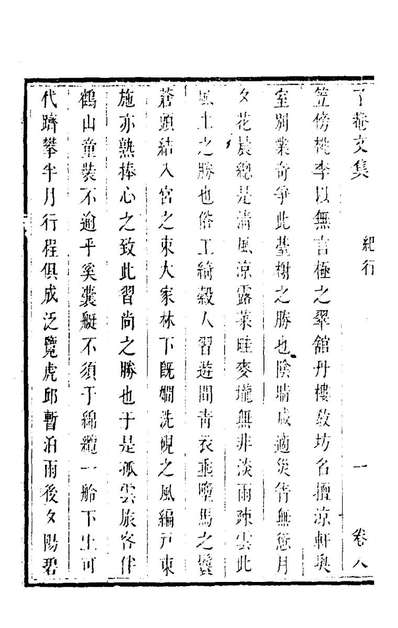 了菴文集 紀行 一 卷八
笠傍桃李以無言極之翠館丹樓教坊名擅涼軒奧
室別業奇爭此臺榭之勝也陰晴咸適災眚無愆月
夕花晨總是清風涼露菜畦麥壠無非淡雨疎雲此
風土之勝也俗工綺縠人習遊間青衣垂墮馬之鬟
蒼頭結入宮之束大家林下旣嫺洗硯之風編戸東
施亦熟捧心之致此習尚之勝也于是孤雲旅客伴
鶴山童裝不逾乎奚囊艇不須于綿纜一舲下上可
代躋攀半月行程俱成泛覽虎邱暫泊雨後夕陽碧